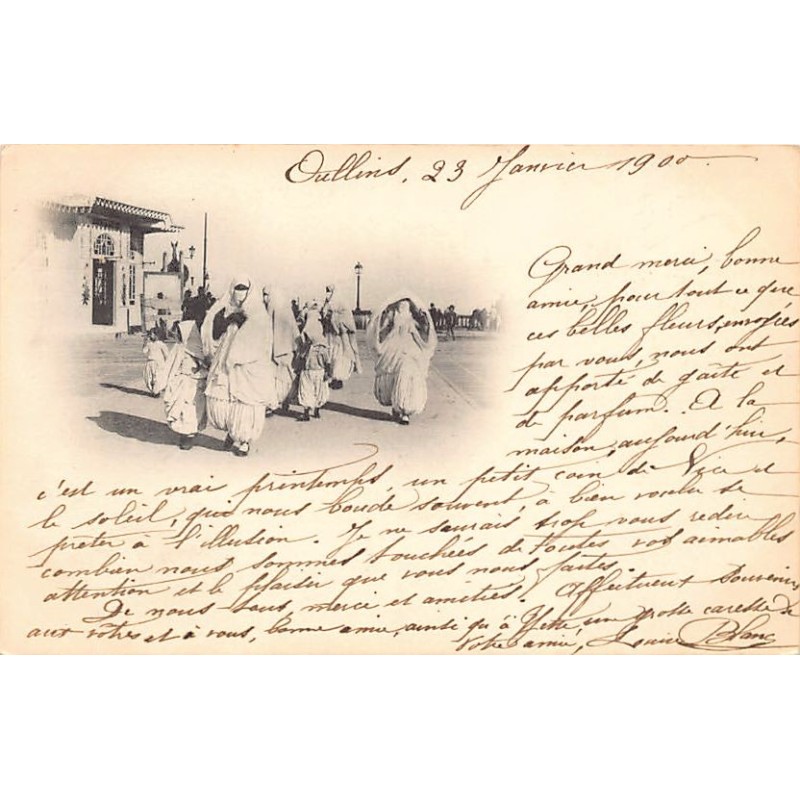 Oullins, 23 Janvier 1900
Grand merci, bonne
amie, pour tout ce que
ces belles fleurs, envoyées
par vous, nous ont
apporté de gaîté et
de parfum. A la
maison, aujourd'hui,
c'est un vrai printemps, un petit coin de Nice et
le soleil, qui nous boude souvent, a bien voulu se
prêter à l'illusion. Je ne saurais trop vous redire
combien nous sommes touchées de toutes vos aimables
attention et le plaisir que vous nous faites.
De nous tous, merci et amitiés. Affectueux souvenirs
aux vôtres et à vous, bonne amie, ainsi qu'à une grosse caresse de
Votre amie, Louise Blanc